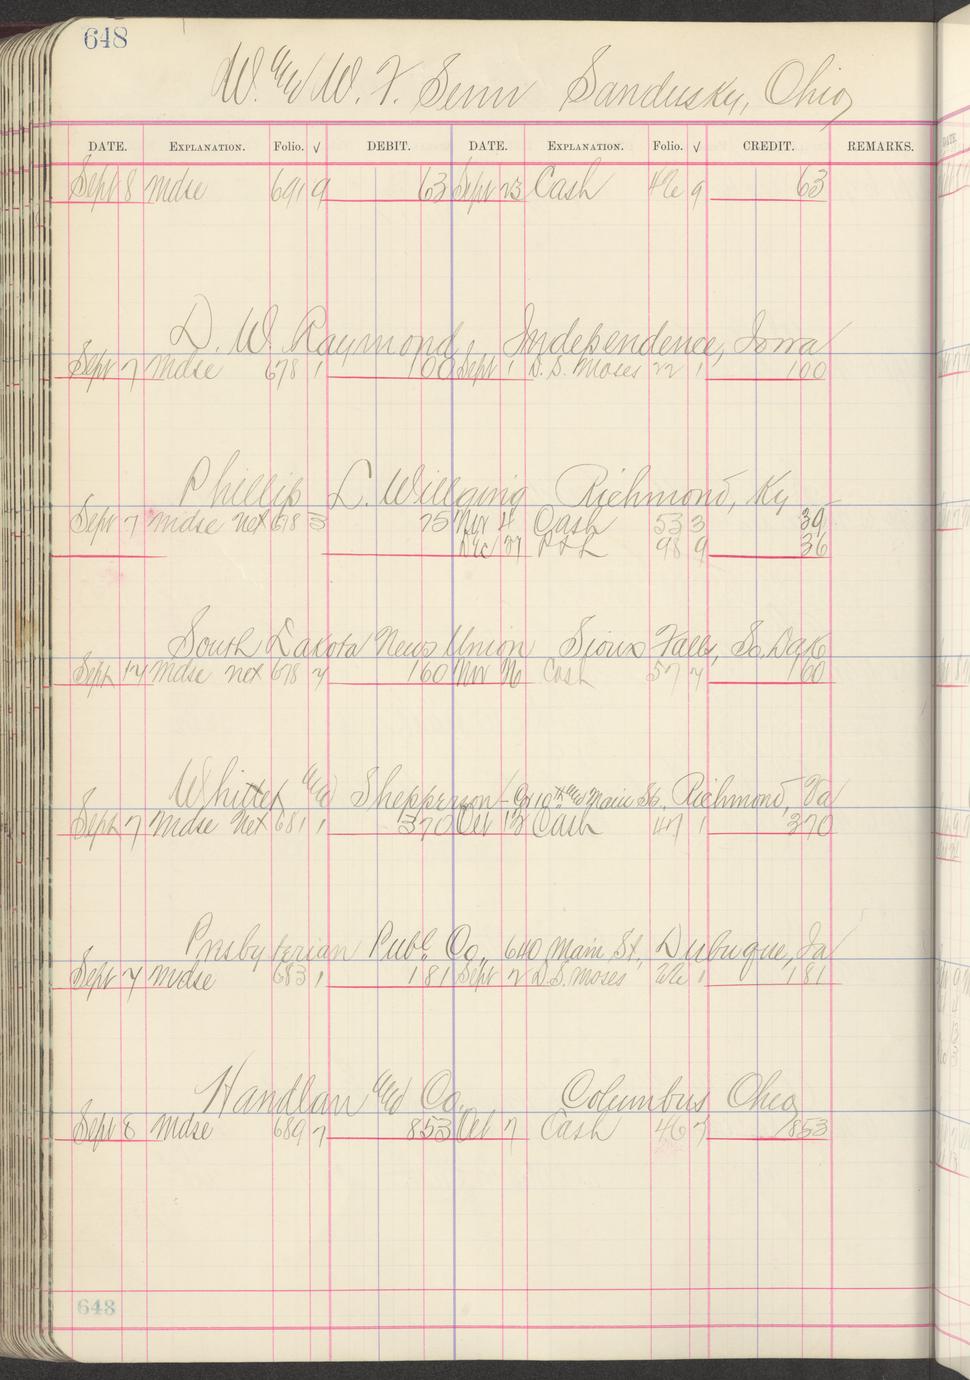 648
W. and W. F. Senn Sandusky, Ohio
DATE. EXPLANATION. Folio. √ DEBIT. DATE. EXPLANATION. Folio. √ CREDIT. REMARKS.
Sept 8 Mdse 691 9 63 Sept 23 Cash 46 9 63
D. W. Raymond Independence, Iowa
Sept 7 Mdse 678 1 100 Sept 1 D. S. Moses 22 1 100
Phillip L. Willging Richmond, Ky
Sept 7 Mdse net 678 3 75 Nov 4 Cash 53 3 39
Dec 27 P & L 98 9 36
South Dakota News Union Sioux Falls, So. Dak
Sept 14 Mdse net 678 7 160 Nov 16 Cash 57 7 160
Whittet and Shepperson - Cor 10th and Main Sts, Richmond, Va
Sept 7 Mdse Net 681 1 370 Oct 13 Cash 47 1 370
Presbyterian Publ. Co. 640 Main St., Dubuque, Ia
Sept 7 Mdse 683 1 181 Sept 2 D. S. Moses 1 181
Handlan and Co. Columbus Ohio
Sept 8 Mdse 689 7 853 Oct 7 Cash 46 7 853
648